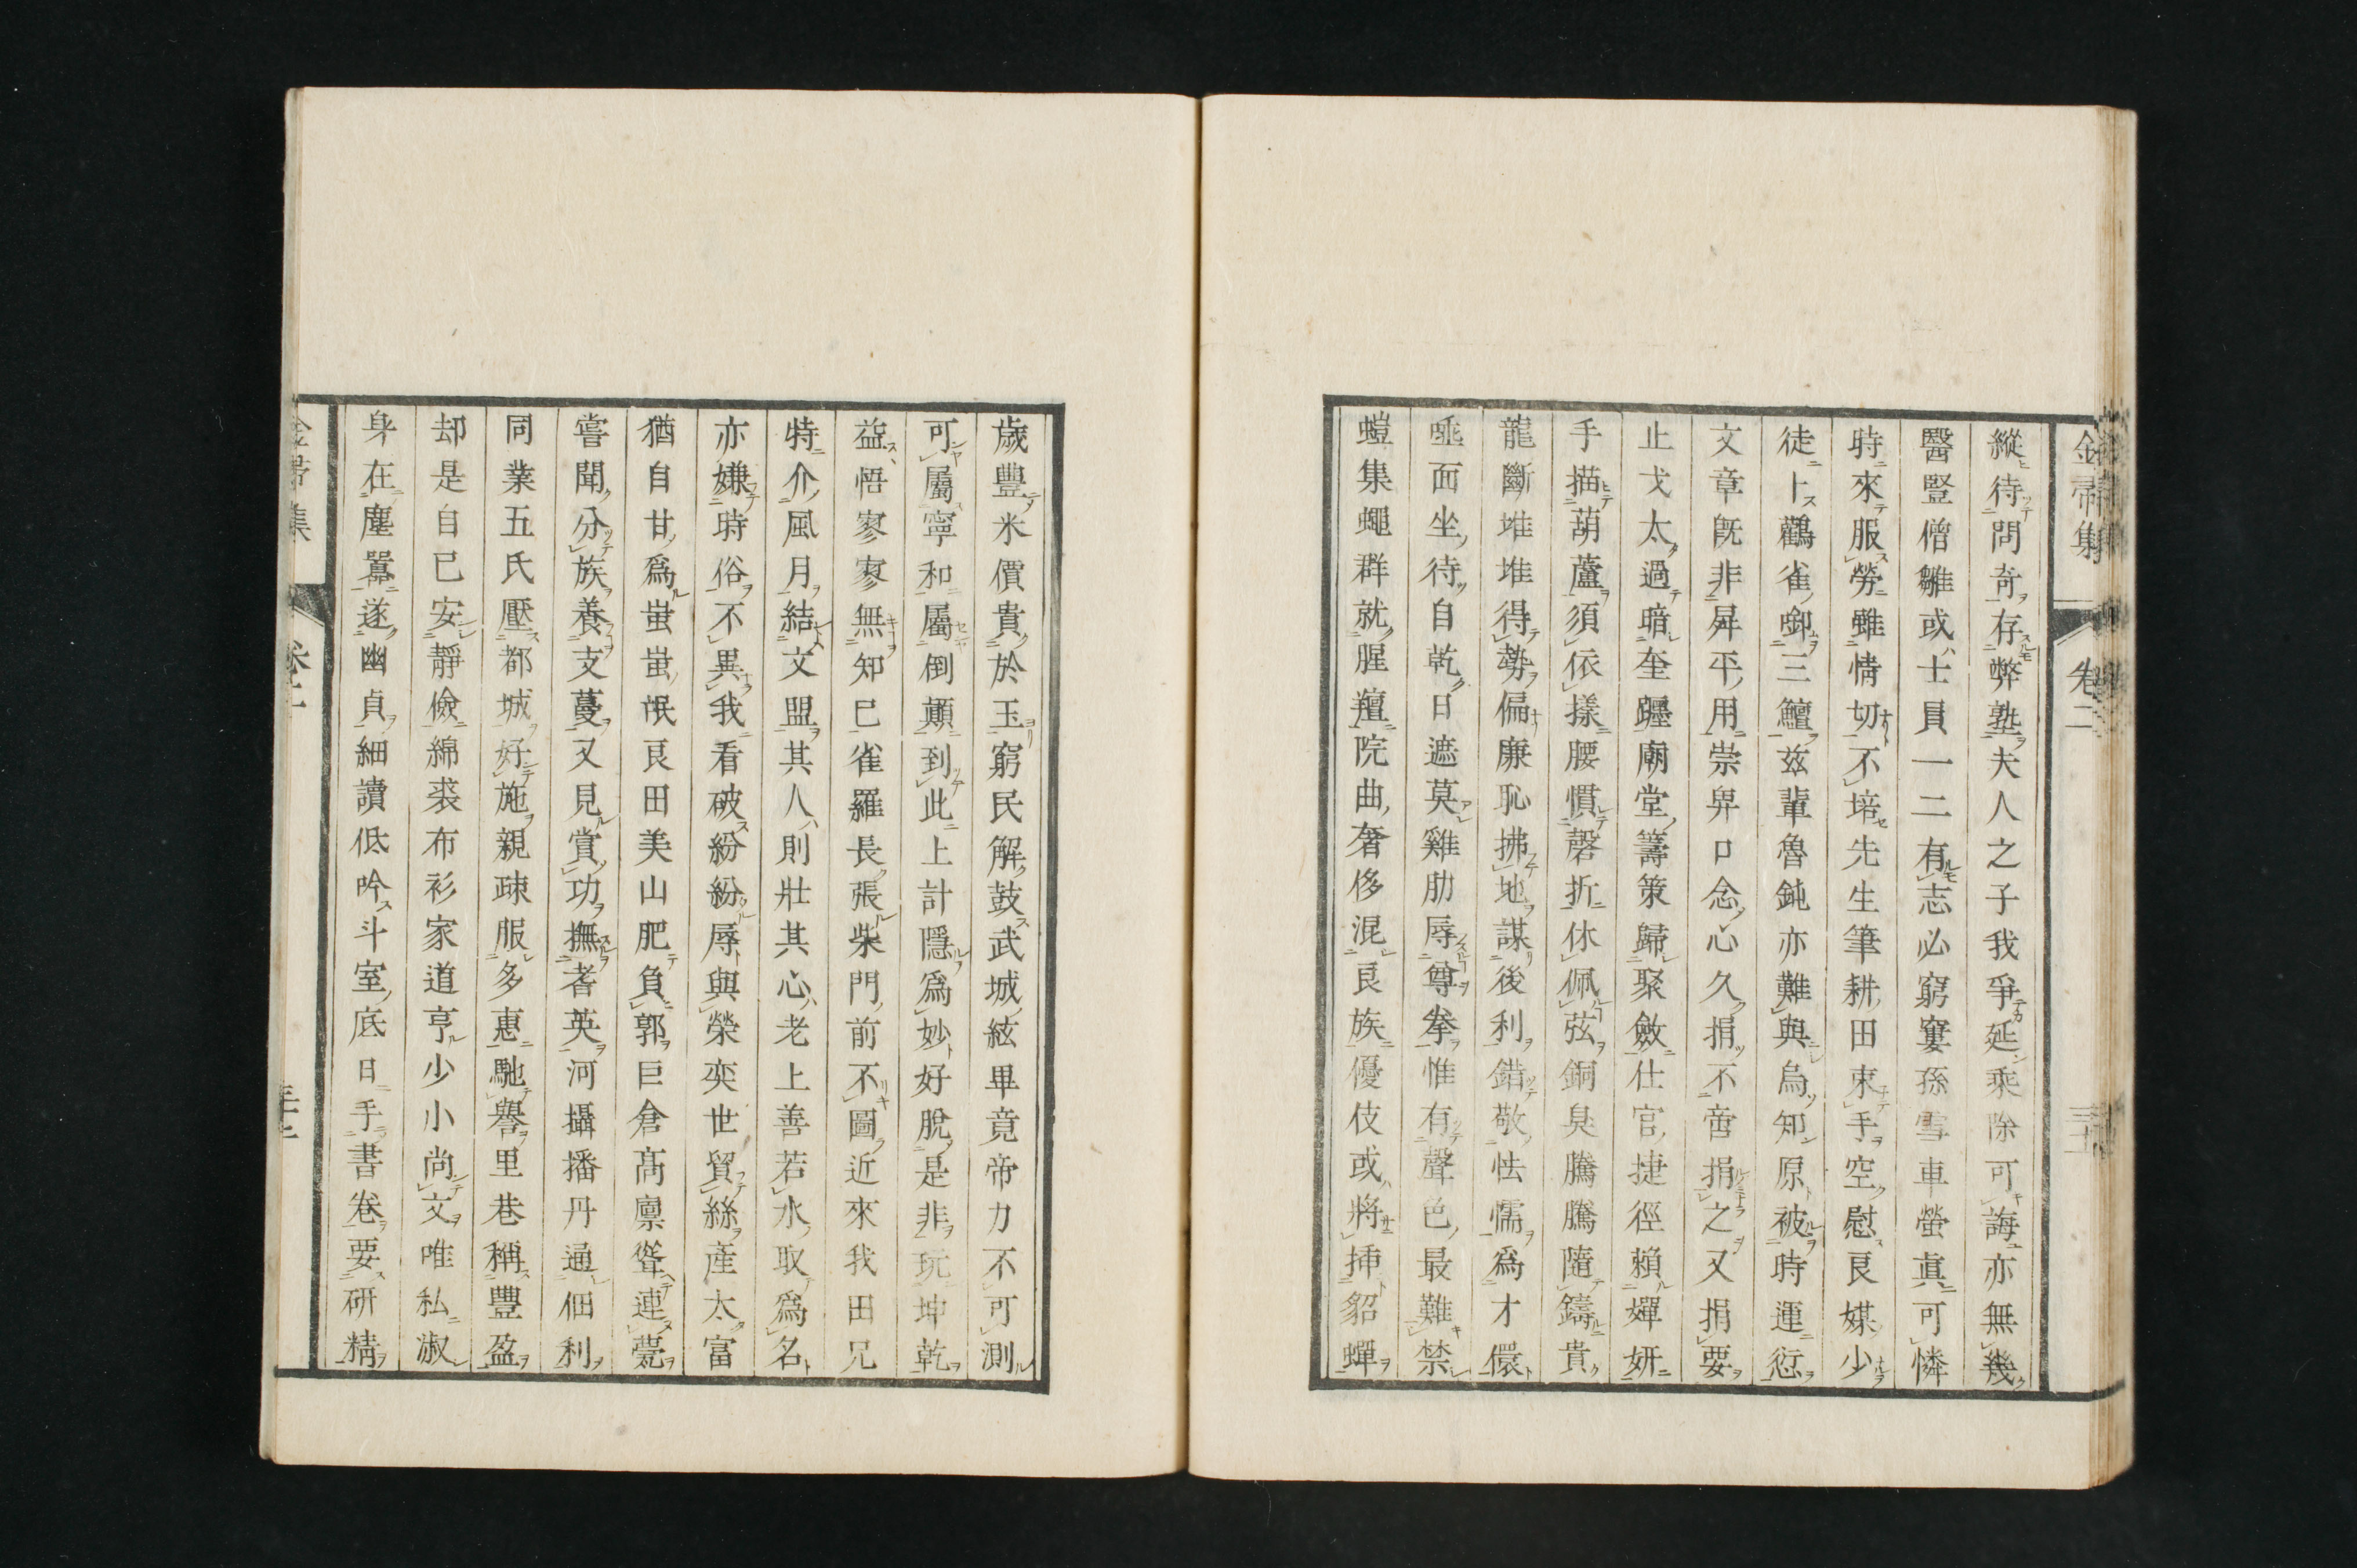 金帚集 卷二
縱待問奇存弊塾夫人之子我爭延乘除可誨亦無幾
醫豎僧雛或士員一二有志必窮寠孫雪車螢眞可憐
時來服勞雖情切不培先生筆耕田束手空慰良媒少
徒卜鸛雀銜三鱣茲輩魯鈍亦難與烏知原被時運愆
文章既非昇平用崇卑口念心久捐不啻捐之又捐要
止戈太過暗奎躔廟堂籌策歸聚斂仕官捷徑賴嬋妍
手描葫蘆須依㨾腰慣磬折休佩弦銅臭騰騰隨鑄貴
龍斷堆堆得勢偏廉恥拂地謀後利錯敬怯懦爲才儇
唾面坐待自乾日遮莫雞肋辱尊拳惟有聲色最難禁
螘集蠅群就腥羶院曲奢侈混良族優伎或將挿貂蟬
歲豐米價貴於玉窮民解鼓武城絃畢竟帝力不可測
可屬寧和屬倒顚到此上計隱爲妙好脫是非玩坤乾
益悟寥寥無知已雀羅長張柴門前不圖近來我田兄
特介風月結文盟其人則壯其心老上善若水取爲名
亦嫌時俗不異我看破紛紛辱與榮奕世貿絲產太富
猶自甘爲蚩蚩氓良田美山肥負郭巨倉髙廪聳連甍
嘗聞分族養支蔓又見賞功撫耆英河攝播丹通佃利
同業五氏壓都城好施親疎服多惠馳譽里巷稱豐盈
却是自已安靜儉綿裘布衫家道亨少小尚文唯私淑
身在塵囂遂幽貞細讀低吟斗室底日手書卷要研精